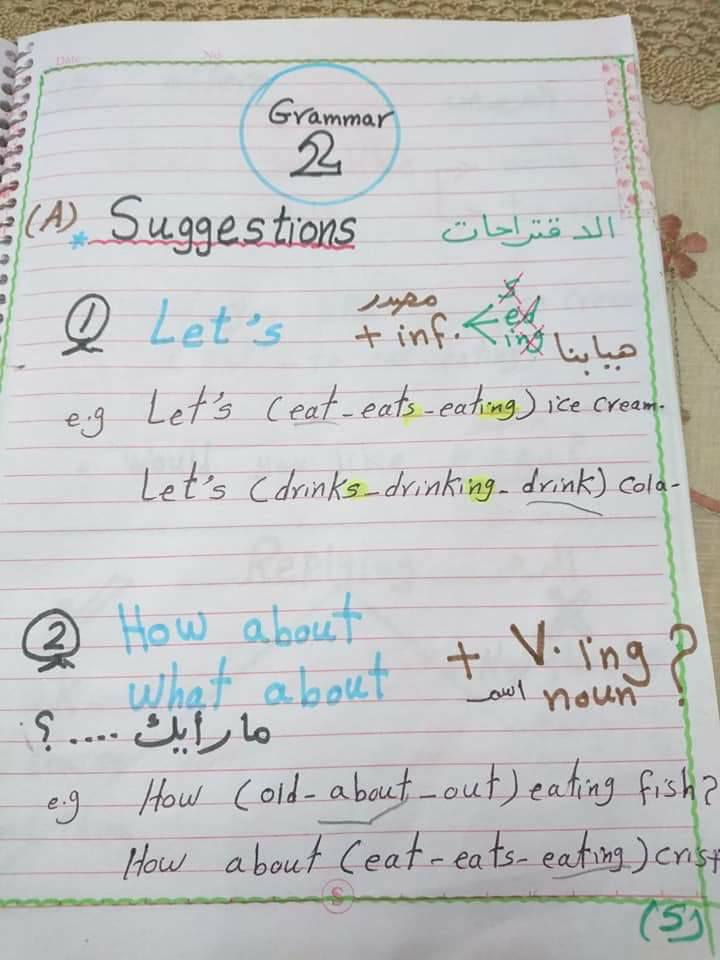 Date
No
Grammar
2
(A) * Suggestions الاقتراحات
1 Let's + inf. مصدر s ed ing هيا بنا
e.g Let's (eat - eats - eating) ice cream.
Let's (drinks - drinking - drink) cola -
2 How about
What about + V. ing noun اسم ?
ما رأيك .... ؟
e.g How (old - about - out) eating fish?
How about (eat - eats - eating) crist
S
(5)